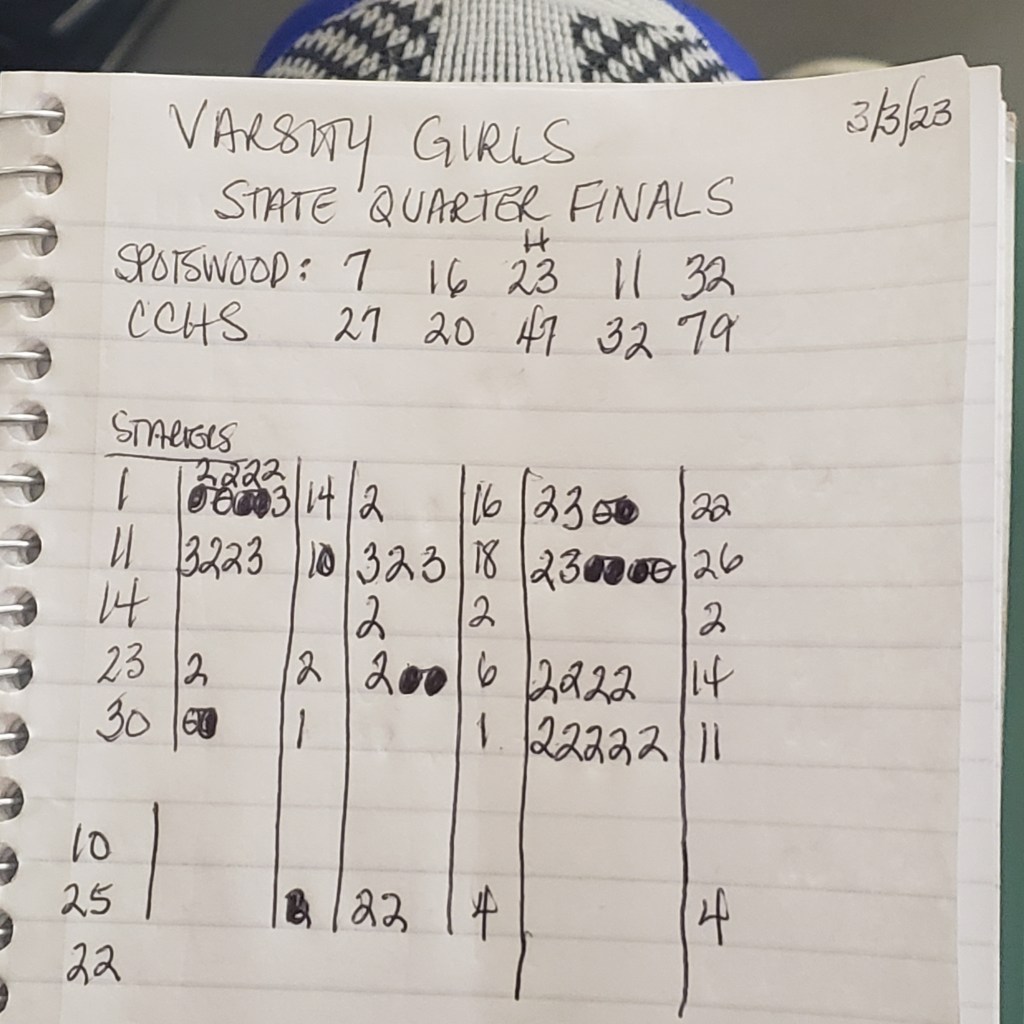 3/3/23
VARSITY GIRLS
STATE QUARTER FINALS
H
SPOTSWOOD: 7 16 23 11 32
CCHS 27 20 47 32 79
STARTERS
2222
1 3 14 2 16 23 22
11 3223 10 323 18 23 26
14 2 2 2
23 2 2 2 6 2222 14
30 1 1 22222 11
10
25 22 4 4
22